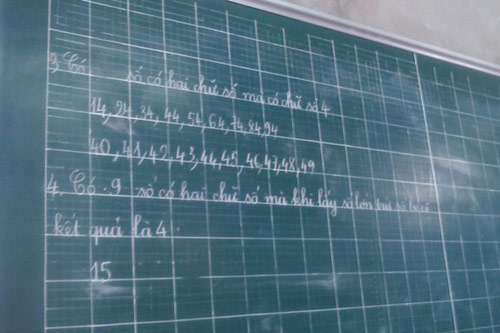 3. Có số có hai chữ số mà có chữ số 4
14, 24, 34, 44, 54, 64, 74, 84, 94
40, 41, 42, 43, 44, 45, 46, 47, 48, 49
4. Có 9 số có hai chữ số mà khi lấy số lớn trừ số bé có
kết quả là 4.
15